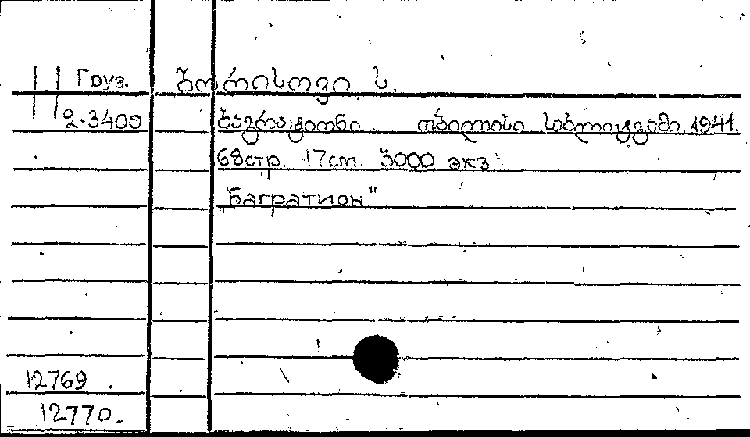 Груз. ბორისოვი ს.
2-3409 ბაგრატიონი. თბილისი სახლიტგამი 1941.
68стр. 17см. 5000 экз.
"Багратион"
12769.
12770.